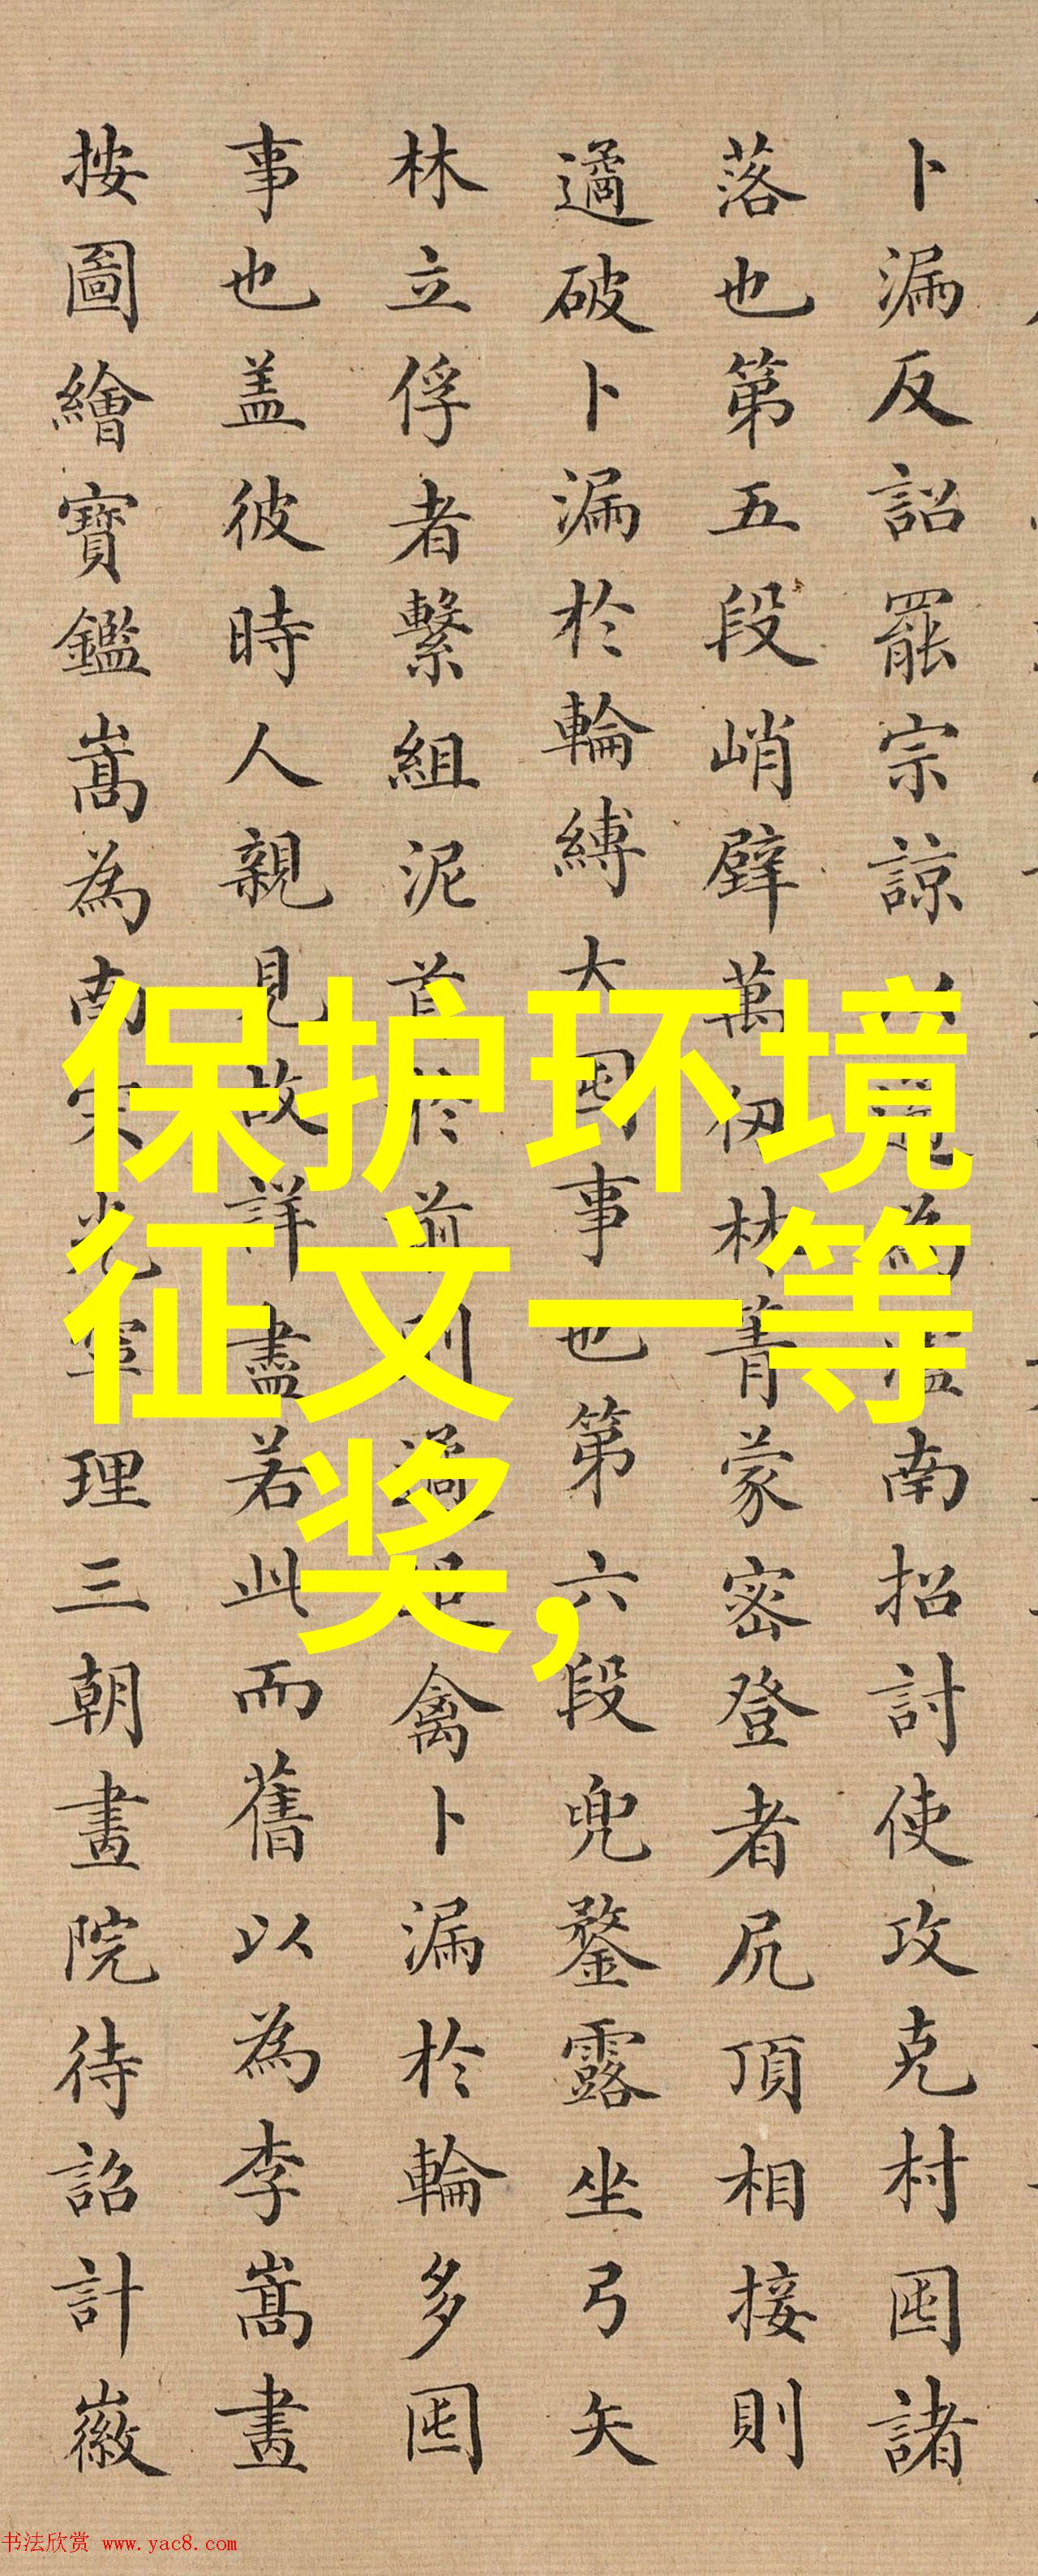 卜漏反詔罷宗諒以遹為瀘南招討使攻克村囤諸
落也第五段峭壁萬仞林菁蒙密登者尻頂相接則
遹破卜漏於輪縛大囤事也第六段兜鍪露坐弓矢
林立俘者繫組泥首於前則遹禽卜漏於輪多囤
事也盖彼時人親見故詳盡若此而舊以為李嵩畫
按圖繪寶鑑嵩為南宋光寧理三朝畫院待詔計徽
保护环境
征文一等
奖,
书法欣赏 www.yac8.com